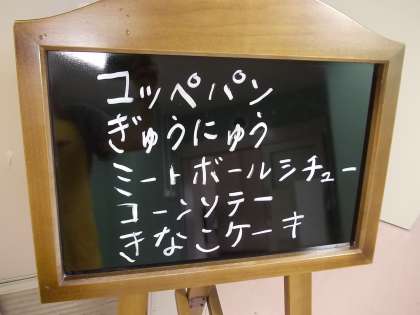 コッペパン
ぎゅうにゅう
ミートボールシチュー
コーンソテー
きなこケーキ